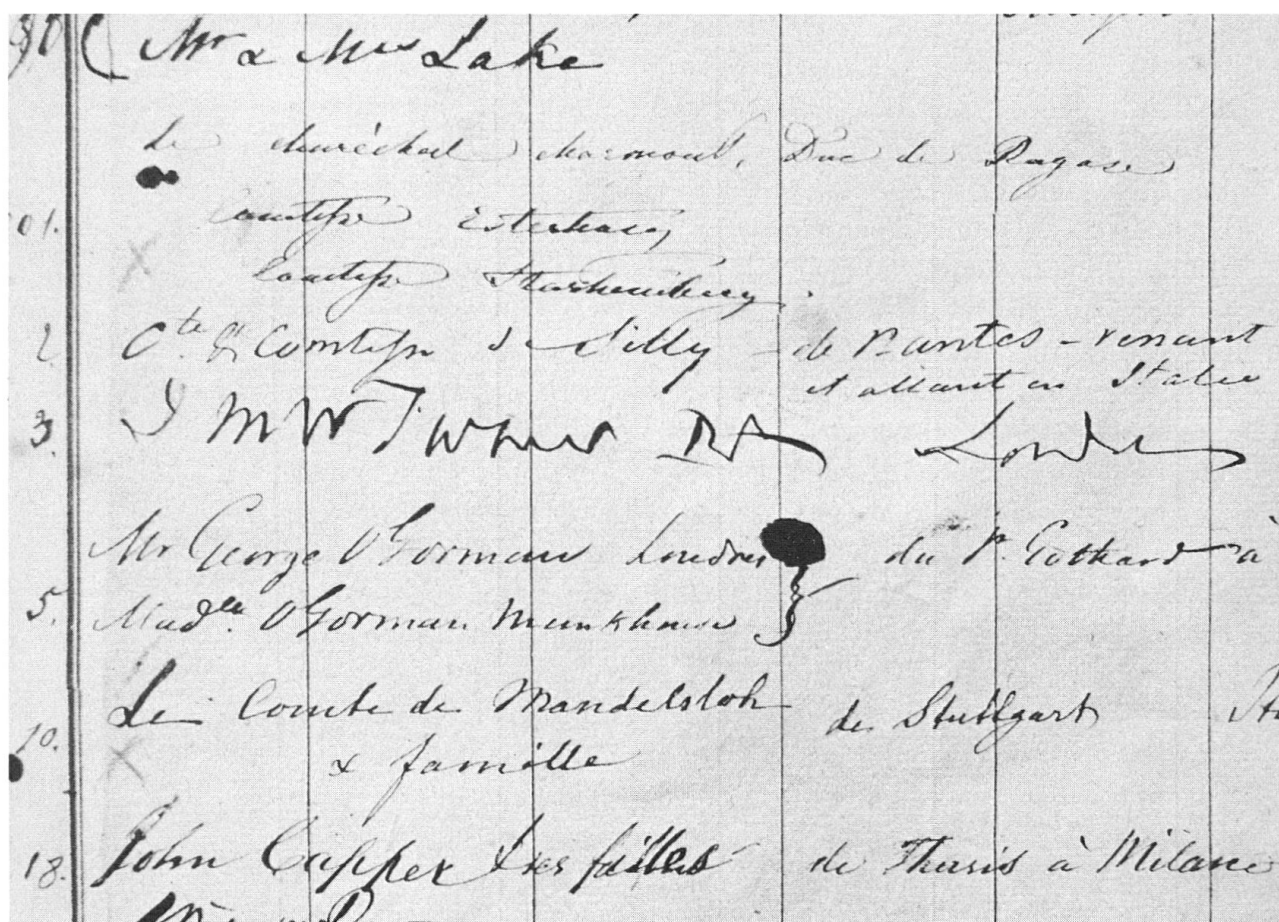 Mr & Mrs Lake
Le Maréchal Marmont, Duc de Raguse
01. Comtesse Esterhazy
Comtesse Starhemberg.
2 Cte & Comtesse de Silly - de Nantes - venant
et allant en Italie
3. J M W Turner RA London
Mr George O'Gorman Londres du St. Gothard à
5. Madlle. O'Gorman Munkhouse
Le Comte de Mandelsloh de Stuttgart
10. & famille
18. John Capper & ses filles de Thusis à Milane